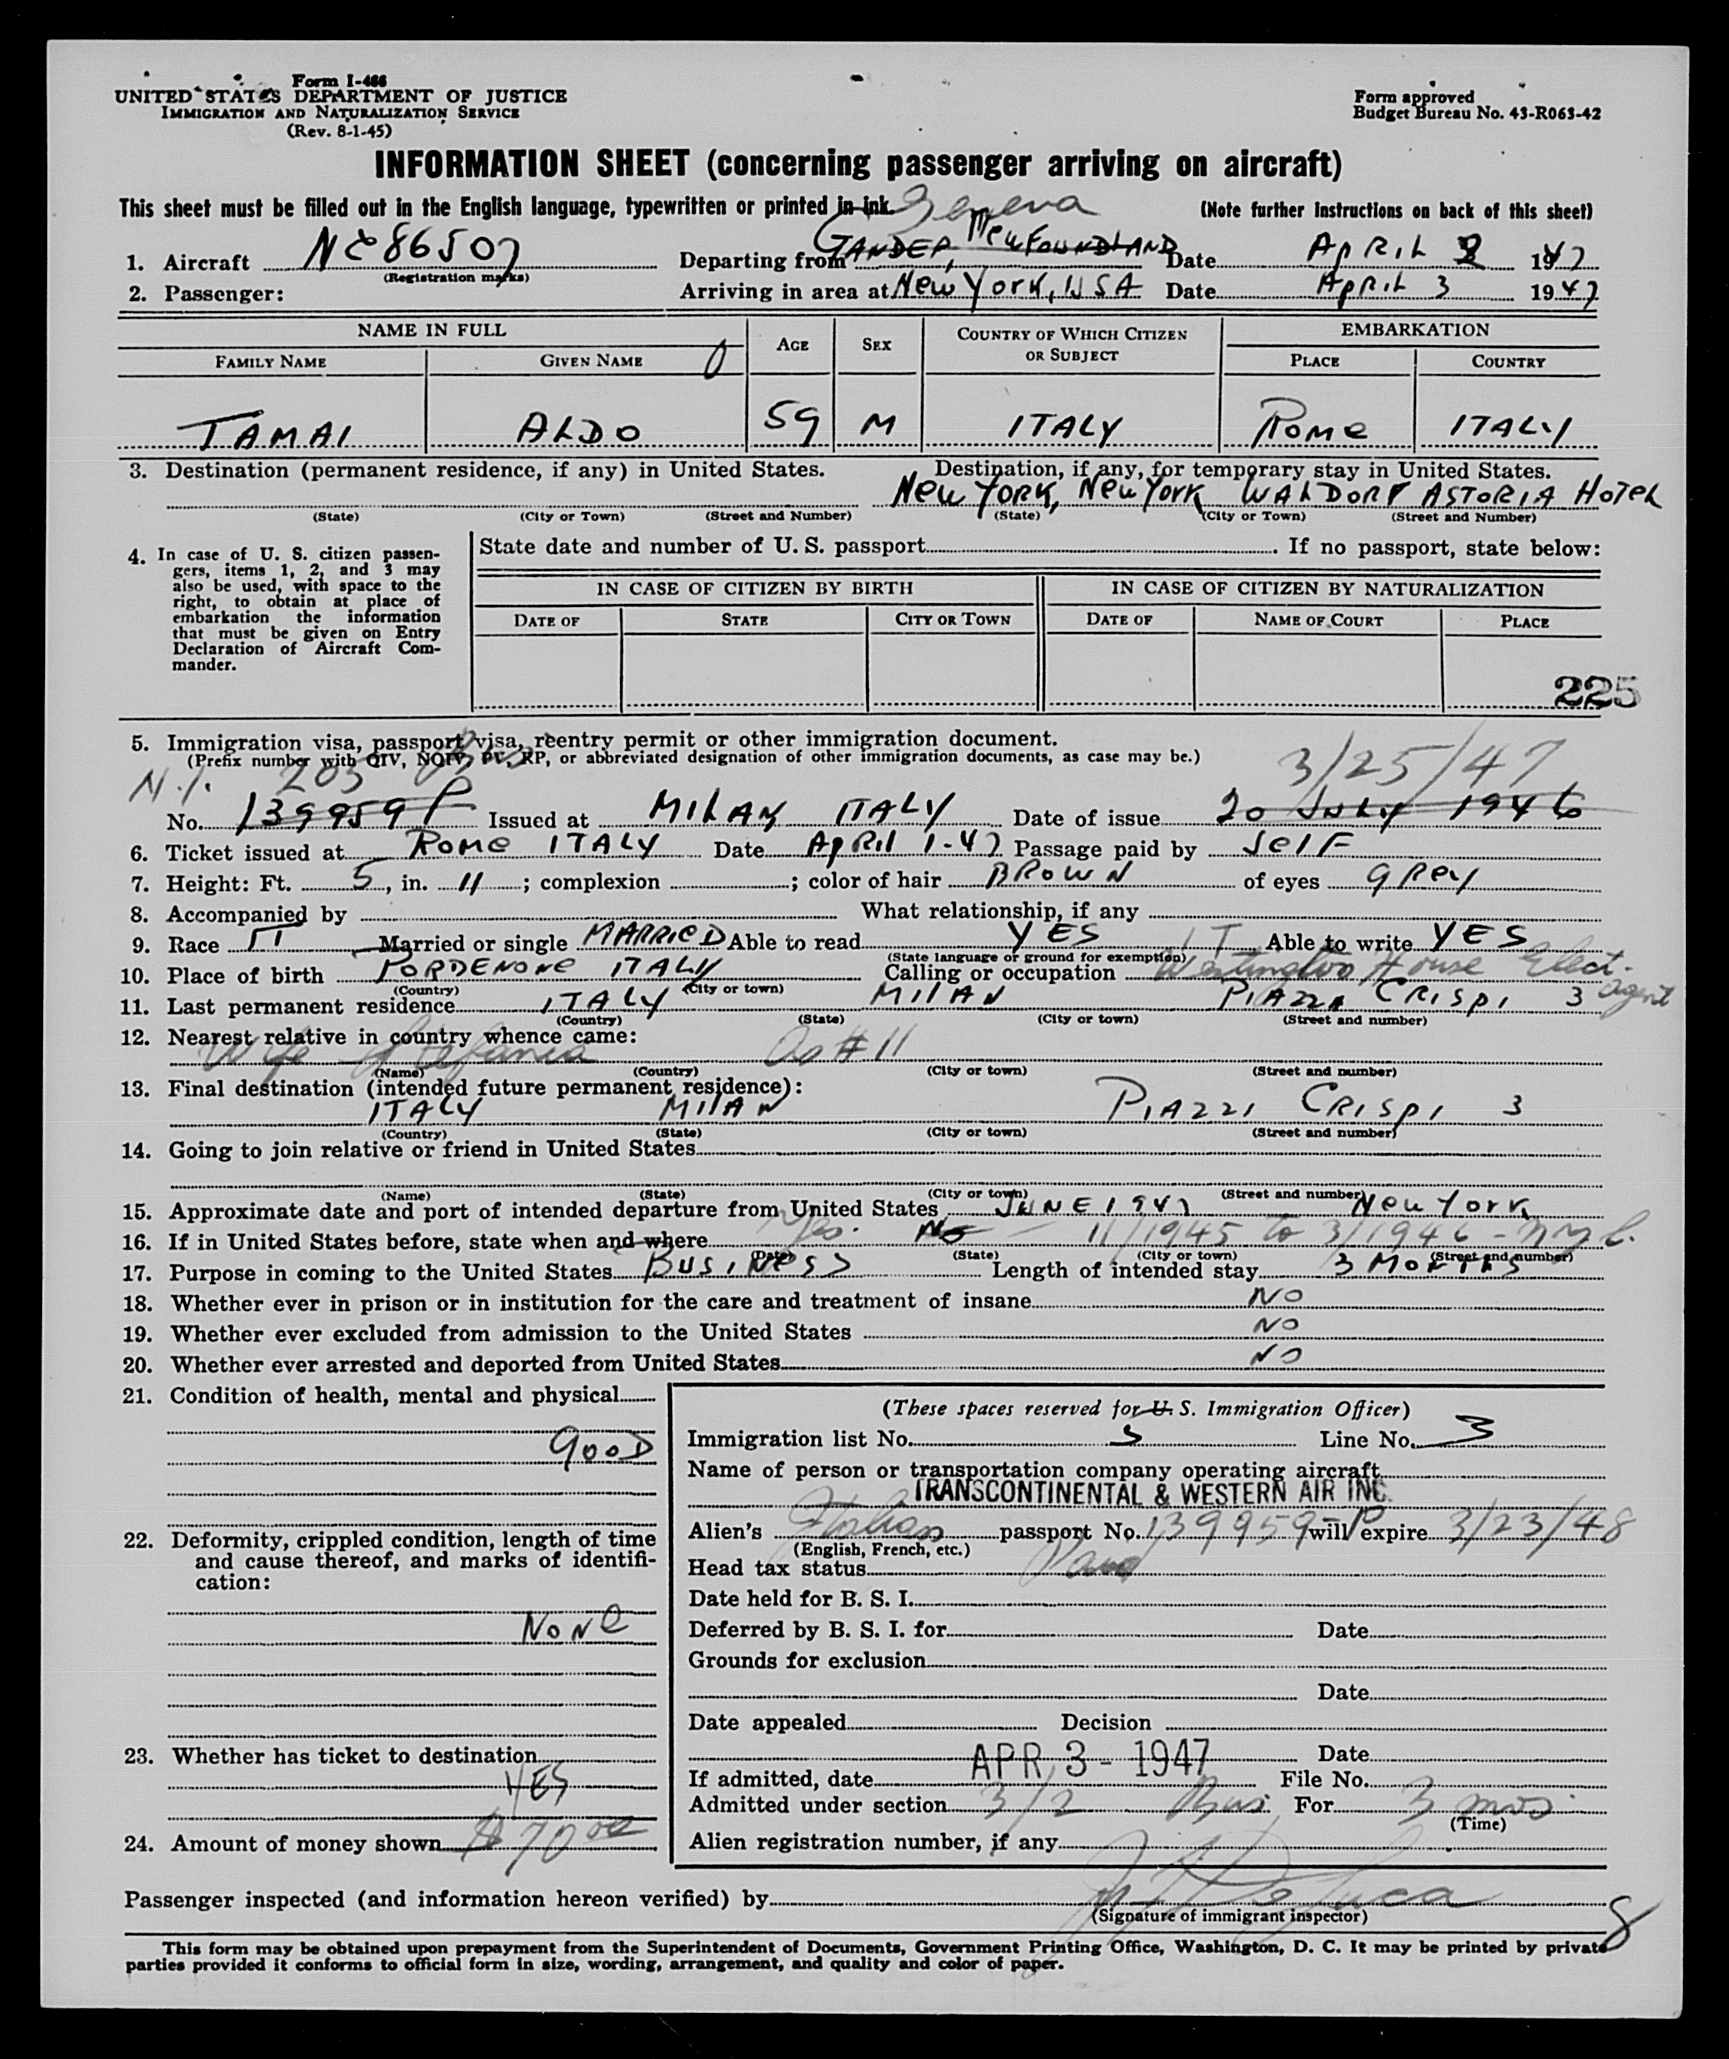 Form I-466
UNITED STATES DEPARTMENT OF JUSTICE
IMMIGRATION AND NATURALIZATION SERVICE
(Rev. 8-1-45)
Form approved
Budget Bureau No. 43-R063-42
INFORMATION SHEET (concerning passenger arriving on aircraft)
This sheet must be filled out in the English language, typewritten or printed in ink.
(Note further instructions on back of this sheet)
Geneva
1. Aircraft NC86507 Departing from GANDER, NEWFOUNDLAND Date APRIL 2 1947
(Registration marks)
2. Passenger: Arriving in area at New York, USA Date APRIL 3 1947
NAME IN FULL AGE SEX COUNTRY OF WHICH CITIZEN OR SUBJECT EMBARKATION
FAMILY NAME GIVEN NAME PLACE COUNTRY
TAMAI ALDO 59 M ITALY Rome ITALY
3. Destination (permanent residence, if any) in United States. Destination, if any, for temporary stay in United States.
New York, New York WALDORF ASTORIA HOTEL
(State) (City or Town) (Street and Number) (State) (City or Town) (Street and Number)
4. In case of U. S. citizen passen-
gers, items 1, 2, and 3 may
also be used, with space to the
right, to obtain at place of
embarkation the information
that must be given on Entry
Declaration of Aircraft Com-
mander.
State date and number of U. S. passport. If no passport, state below:
IN CASE OF CITIZEN BY BIRTH IN CASE OF CITIZEN BY NATURALIZATION
DATE OF STATE CITY OR TOWN DATE OF NAME OF COURT PLACE
225
5. Immigration visa, passport visa, reentry permit or other immigration document.
(Prefix number with QIV, NQIV, PV, RP, or abbreviated designation of other immigration documents, as case may be.)
3/25/47
No. 139959 P Issued at MILAN ITALY Date of issue 20 JULY 1946
6. Ticket issued at Rome ITALY Date April 1-47 Passage paid by Self
7. Height: Ft. 5, in. 11; complexion ; color of hair BROWN of eyes grey
8. Accompanied by What relationship, if any
9. Race IT Married or single MARRIED Able to read YES IT Able to write YES
(State language or ground for exemption)
10. Place of birth PORDENONE ITALY Calling or occupation Westinghouse Elect. agent
(Country) (City or town)
11. Last permanent residence ITALY MILAN PIAZZA CRISPI 3
(Country) (State) (City or town) (Street and number)
12. Nearest relative in country whence came:
Wife Stefania As #11
(Name) (Country) (City or town) (Street and number)
13. Final destination (intended future permanent residence):
ITALY MILAN PIAZZI CRISPI 3
(Country) (State) (City or town) (Street and number)
14. Going to join relative or friend in United States
(Name) (State) (City or town) (Street and number)
15. Approximate date and port of intended departure from United States JUNE 1947 New York
16. If in United States before, state when and where Yes. No 11/1945 to 3/1946 - NYC.
(Date) (State) (City or town) (Street and number)
17. Purpose in coming to the United States BUSINESS Length of intended stay 3 MONTHS
18. Whether ever in prison or in institution for the care and treatment of insane NO
19. Whether ever excluded from admission to the United States NO
20. Whether ever arrested and deported from United States NO
21. Condition of health, mental and physical
GOOD
22. Deformity, crippled condition, length of time
and cause thereof, and marks of identifi-
cation:
NONE
23. Whether has ticket to destination
YES
24. Amount of money shown $70.00
(These spaces reserved for U. S. Immigration Officer)
Immigration list No. 3 Line No. 3
Name of person or transportation company operating aircraft
TRANSCONTINENTAL & WESTERN AIR INC.
Alien's Italian passport No. 139959 P will expire 3/23/48
(English, French, etc.)
Head tax status
Date held for B. S. I.
Deferred by B. S. I. for Date
Grounds for exclusion
Date
Date appealed Decision
Date
If admitted, date APR 3 - 1947 File No.
Admitted under section 3/2 Bus. For 3 mos.
(Time)
Alien registration number, if any
Passenger inspected (and information hereon verified) by
(Signature of immigrant inspector)
8
This form may be obtained upon prepayment from the Superintendent of Documents, Government Printing Office, Washington, D. C. It may be printed by private
parties provided it conforms to official form in size, wording, arrangement, and quality and color of paper.